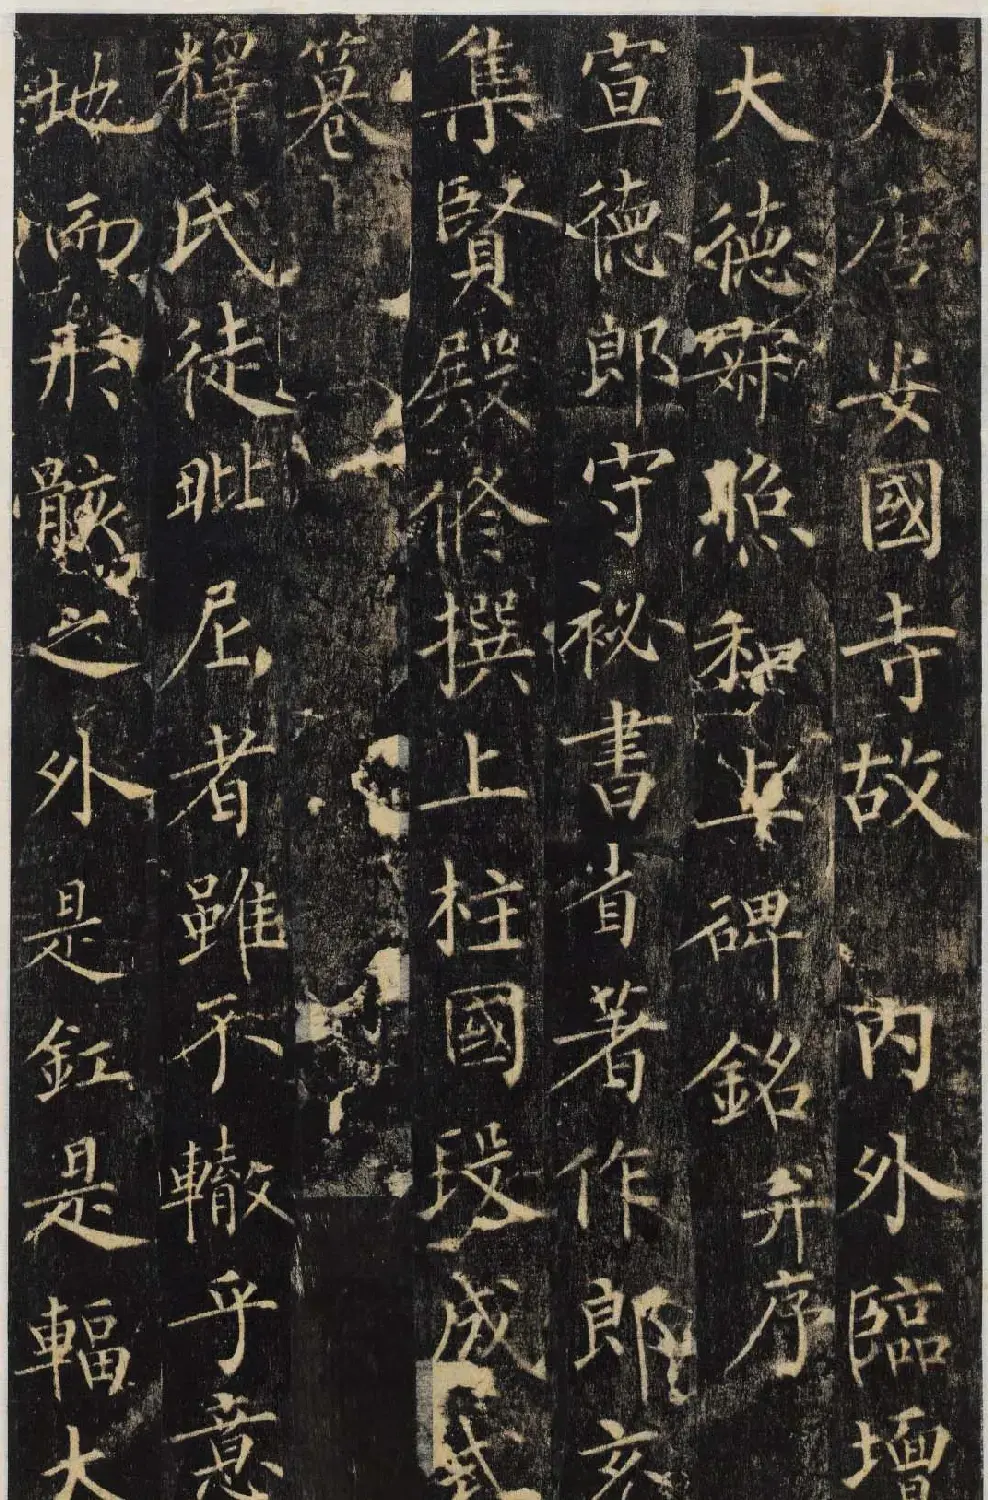 大唐安國寺故內外臨壇
大德寂照和上碑銘并序
宣德郎守祕書省著作郎充
集賢殿修撰上柱國段成式
篹
釋氏徒毗尼者雖不轍乎意
地而形骸之外是釭是輻大